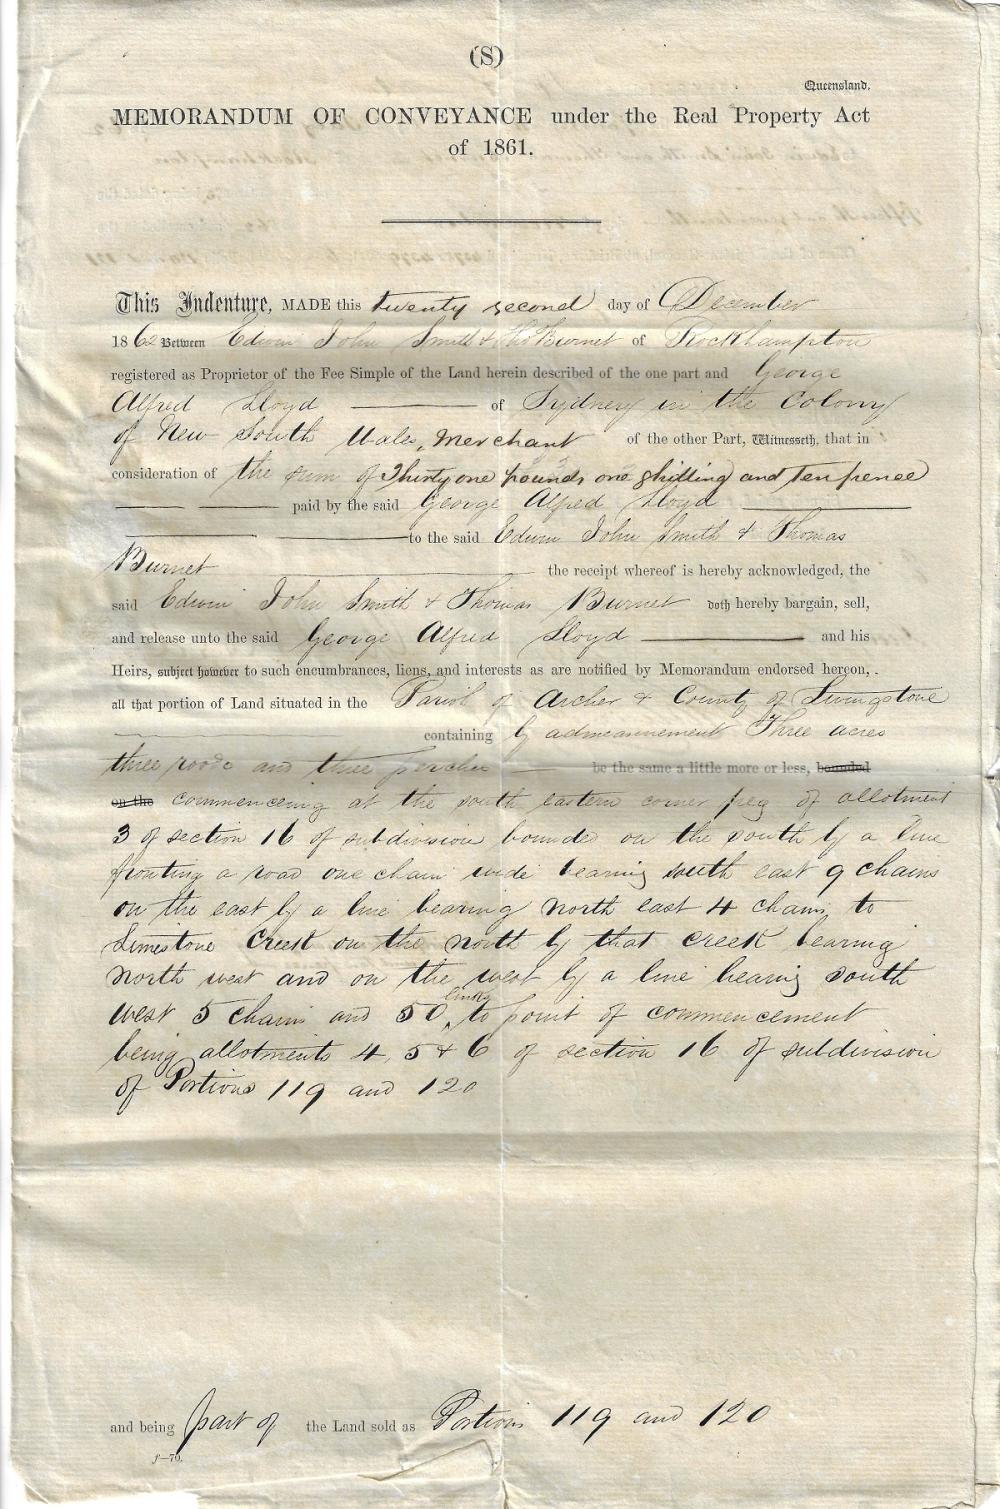 (S)
Queensland.
MEMORANDUM OF CONVEYANCE under the Real Property Act
of 1861.
This Indenture, MADE this twenty second day of December
1862 Between Edwin John Smith & Thos Burnet of Rockhampton
registered as Proprietor of the Fee Simple of the Land herein described of the one part and George
Alfred Lloyd of Sydney in the Colony
of New South Wales, Merchant of the other Part, Witnesseth, that in
consideration of the sum of Thirty one pounds one shilling and ten pence
paid by the said George Alfred Lloyd
to the said Edwin John Smith & Thomas
Burnet the receipt whereof is hereby acknowledged, the
said Edwin John Smith & Thomas Burnet doth hereby bargain, sell,
and release unto the said George Alfred Lloyd and his
Heirs, subject however to such encumbrances, liens, and interests as are notified by Memorandum endorsed hereon,
all that portion of Land situated in the Parish of Archer & County of Livingstone
containing by admeasurement Three acres
three roods and three perches be the same a little more or less, bounded
on the commencing at the south eastern corner peg of allotment
3 of section 16 of subdivision bounded on the south by a line
fronting a road one chain wide bearing south east 9 chains
on the east by a line bearing North east 4 chains to
Limestone Creek on the north by that creek bearing
North west and on the west by a line bearing south
west 5 chains and 50 links to point of commencement
being allotments 4, 5 & 6 of section 16 of subdivision
of Portions 119 and 120
and being part of the Land sold as Portions 119 and 120
f—70.